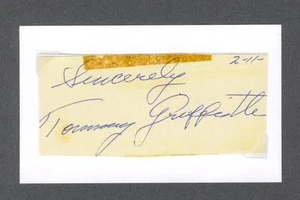 2-11-
Sincerely
Tommy Griffith